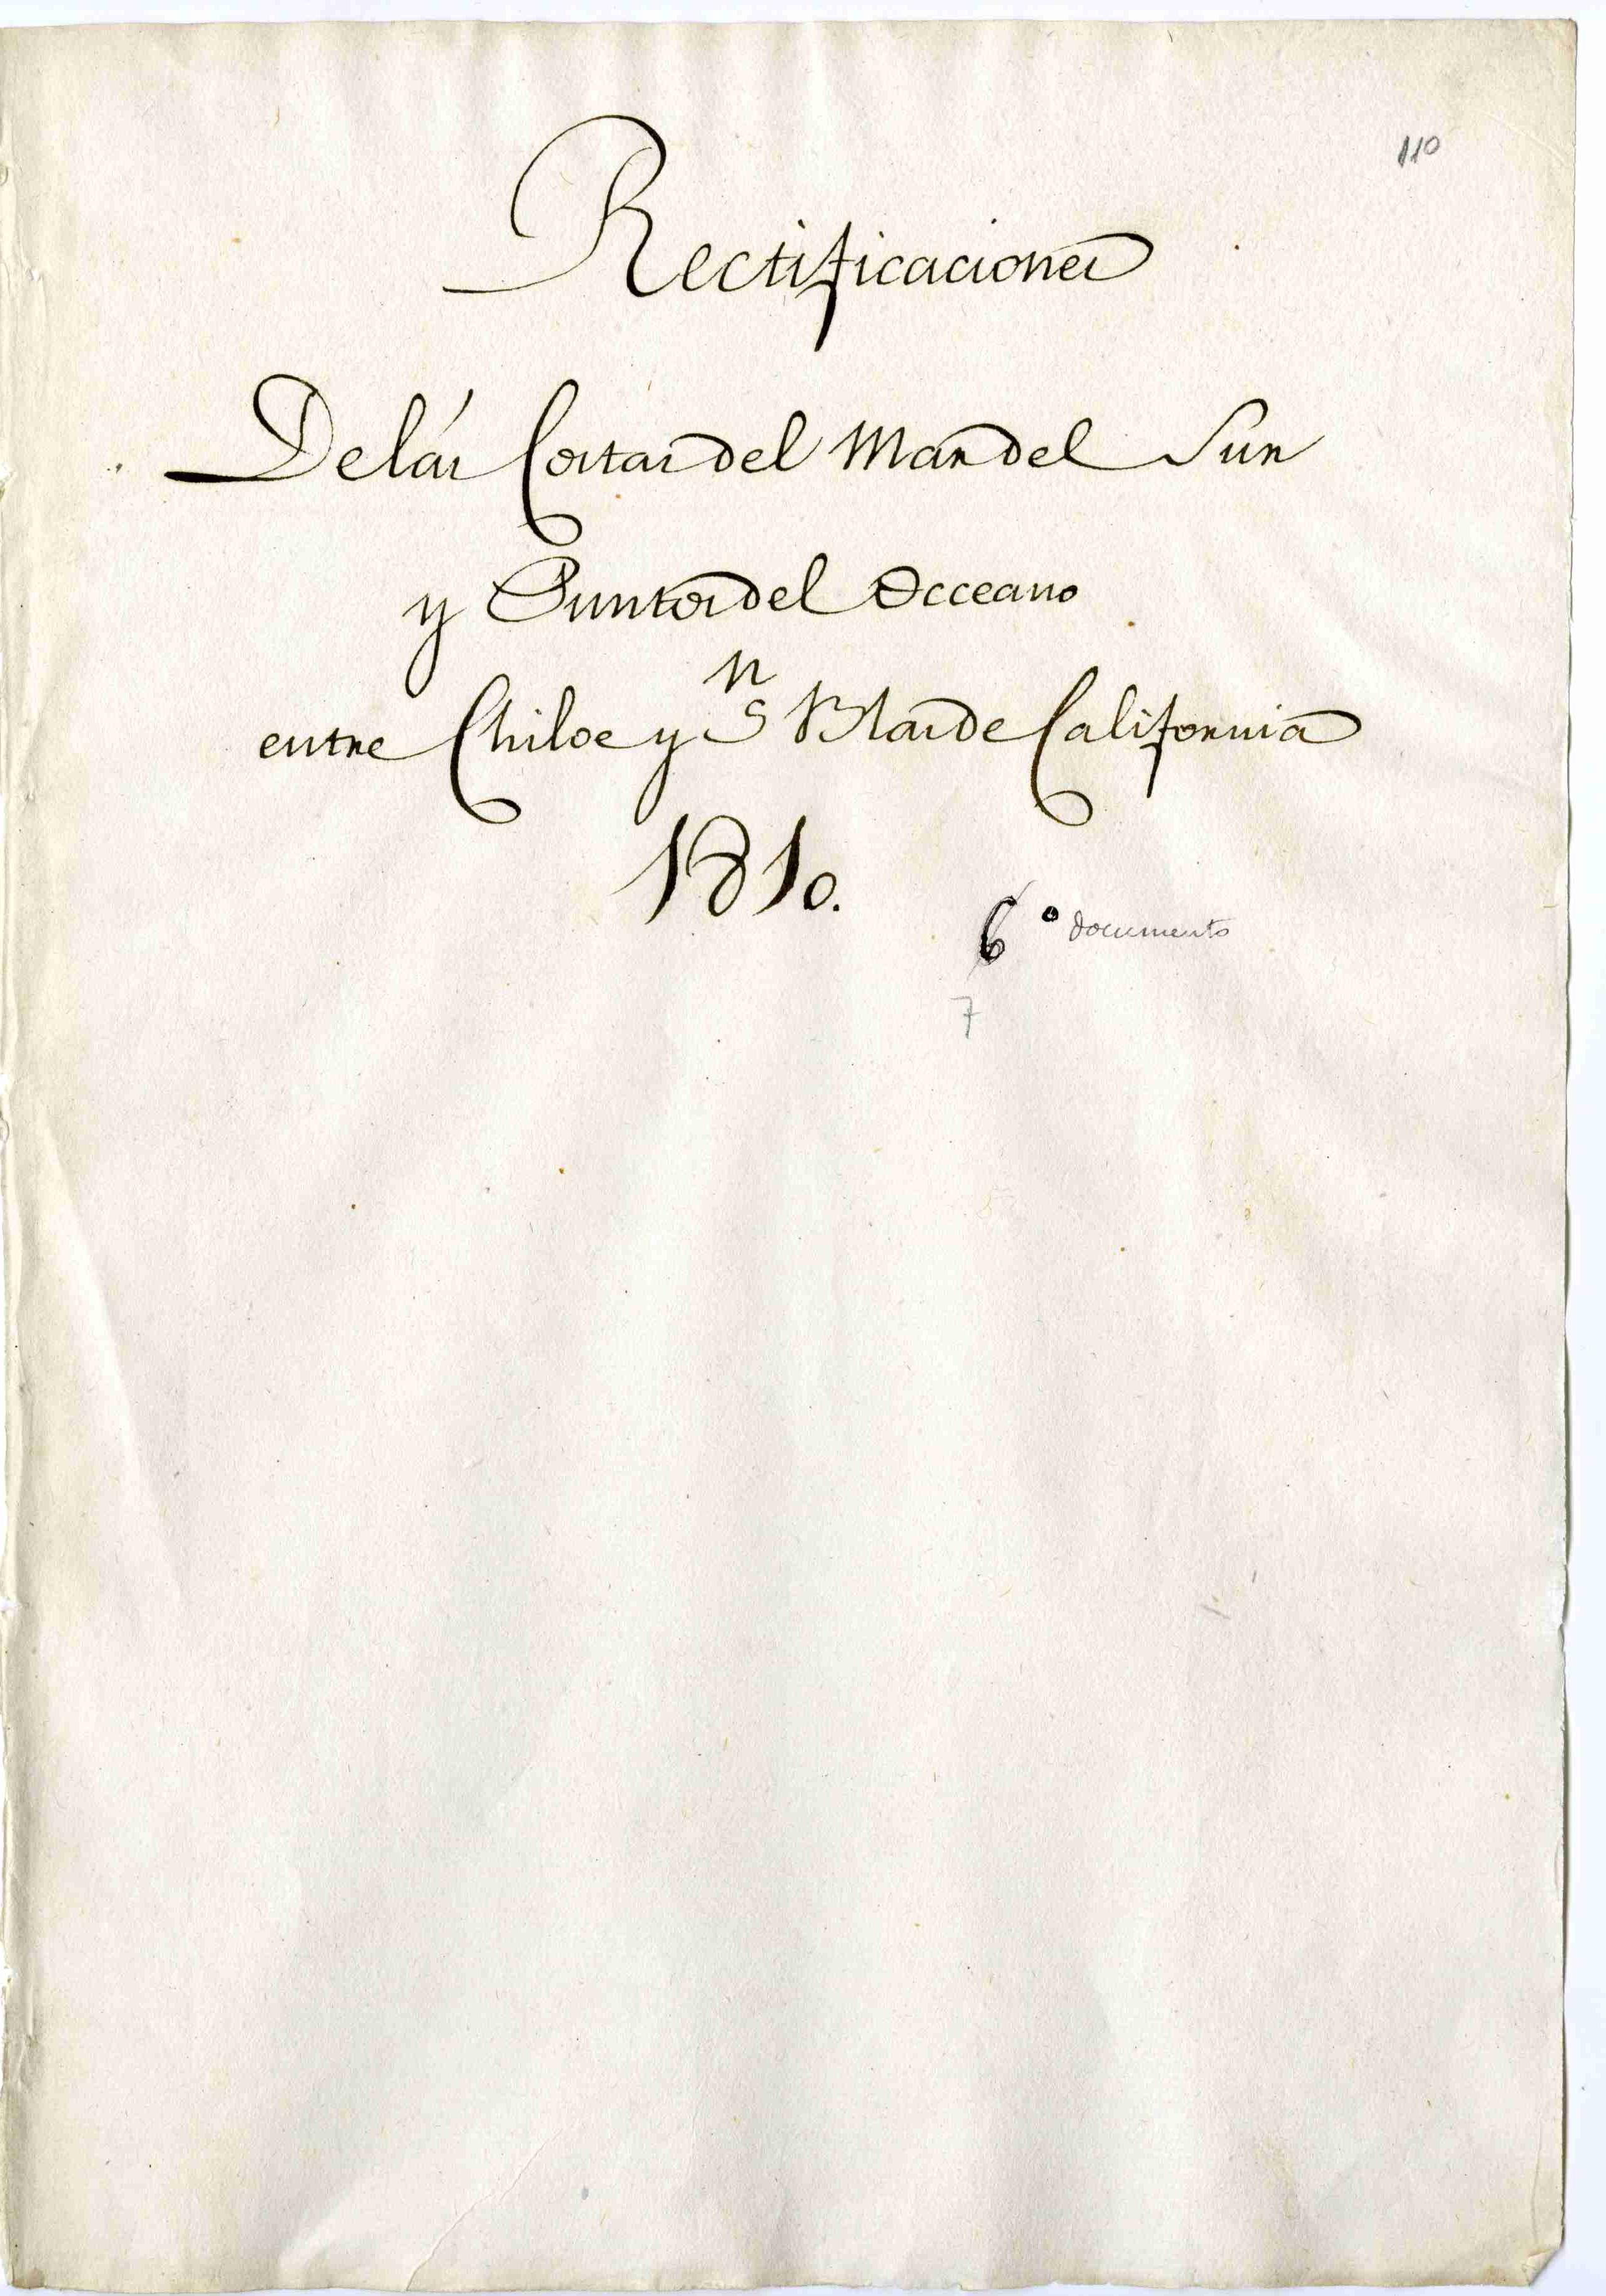 110
Rectificaciones
De lás Costas del Mar del Sur
y Puntos del Occeano
entre Chiloe y Sn Blas de California
1810.
6º documento
7